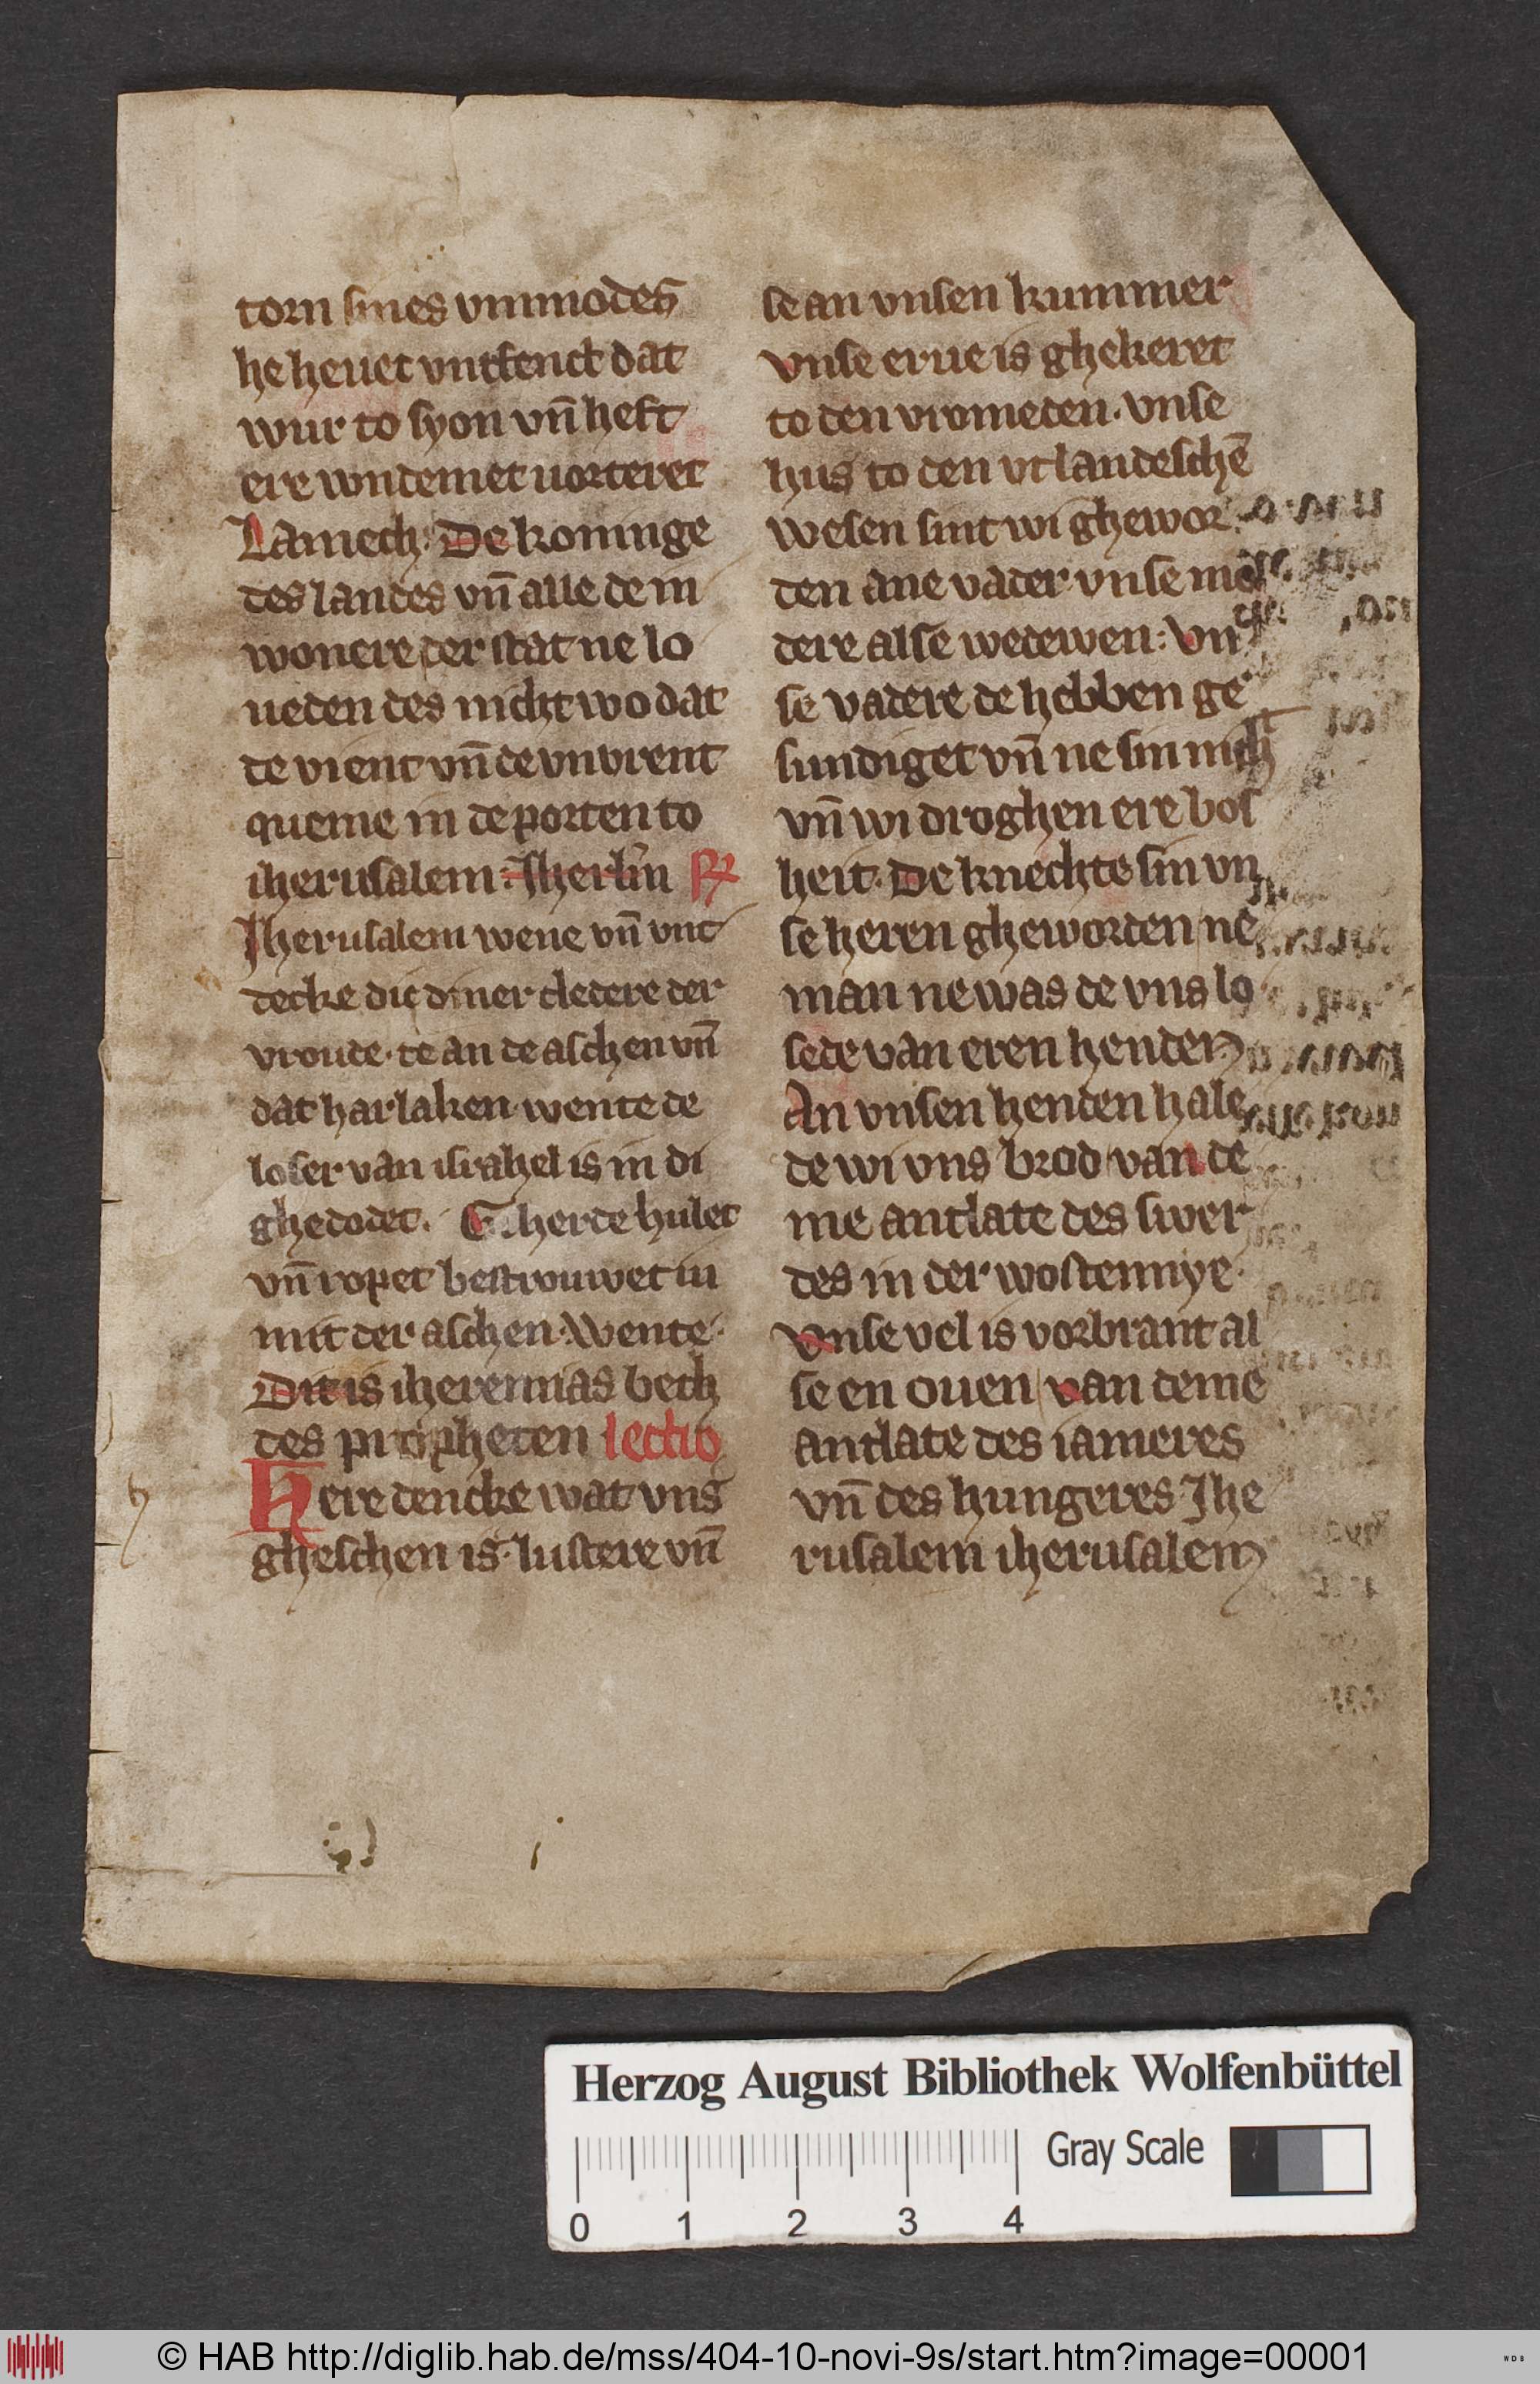 torn sines vnmodes
he heuet vntfenct dat
wur to syon vn̄ heft
ere wndemet uorteret
Lamech. De koninge
des landes vn̄ alle de in
wonere der stat ne lo
ueden des nicht wo dat
de vient vn̄ de vnvrent
queme in de porten to
iherusalem: Iherl̄m
Iherusalem wene vn̄ vnt
decke dic diner cledere der
vroude. te an de aschen vn̄
dat harlaken. wente de
loser van israhel is in di
ghedodet. herde hulet
vn̄ ropet bestrouwet iu
mit der aschen. Wente.
Dit is iheremias bech
des propheten lectio
Here dencke wat vns
gheschen is. lustere vn̄
se an vnsen kummer
vnse erue is ghekeret
to den vromeden. vnse
hus to den vtlandeschē
wesen sint wi ghewor
den ane vader vnse mo
dere alse wedewen: Vn
se vadere de hebben ge
sundiget vn̄ ne sin nich
vn̄ wi droghen ere bos
heit. De knechte sin vn
se heren gheworden ne
man ne was de vns lo
sede van eren henden
An vnsen henden hale
de wi vns brod van de
me antlate des swer
des in der wostennye.
Vnse vel is vorbrant al
se en ouen van deme
antlate des iameres
vn̄ des hungeres Ihe
rusalem iherusalem
Herzog August Bibliothek Wolfenbüttel
Gray Scale
0 1 2 3 4
© HAB http://diglib.hab.de/mss/404-10-novi-9s/start.htm?image=00001